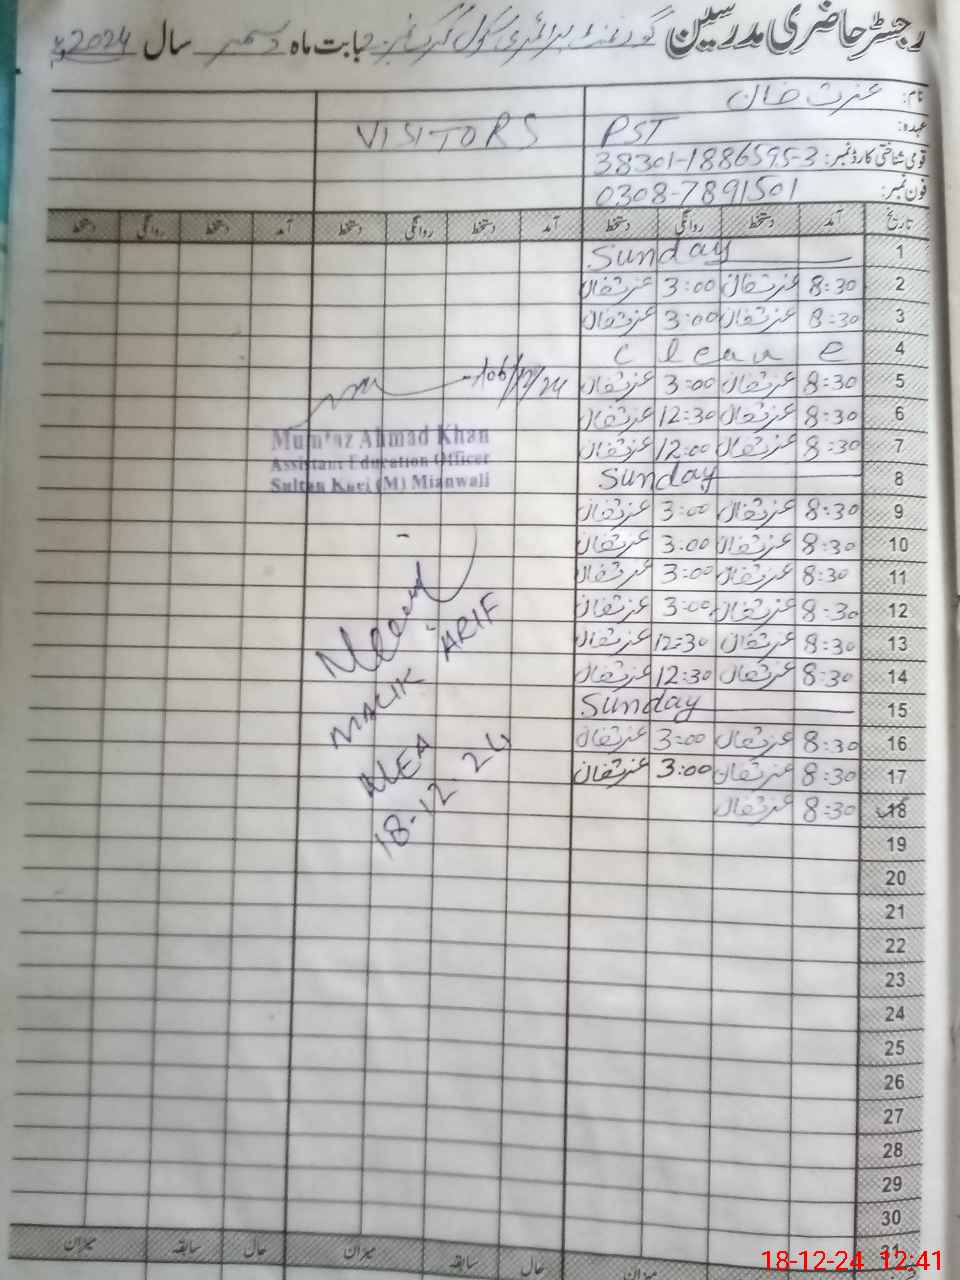 رجسٹر حاضری مدرسین گورنمنٹ پرائمری سکول نمبر 2 بابت ماہ دسمبر سال 2024ء
نام: عزت خان
عہدہ: PST VISITORS
قومی شناختی کارڈ نمبر: 38301-1886595-3
فون نمبر: 0308-7891501
تاریخ آمد دستخط روانگی دستخط آمد دستخط روانگی دستخط آمد دستخط روانگی دستخط
1 Sunday
2 8:30 عزت خان 3:00 عزت خان
3 8:30 عزت خان 3:00 عزت خان
4 Leave
5 8:30 عزت خان 3:00 عزت خان
6 8:30 عزت خان 12:30 عزت خان
7 8:30 عزت خان 12:00 عزت خان
8 Sunday
9 8:30 عزت خان 3:00 عزت خان
10 8:30 عزت خان 3:00 عزت خان
11 8:30 عزت خان 3:00 عزت خان
12 8:30 عزت خان 3:00 عزت خان
13 8:30 عزت خان 12:30 عزت خان
14 8:30 عزت خان 12:30 عزت خان
15 Sunday
16 8:30 عزت خان 3:00 عزت خان
17 8:30 عزت خان 3:00 عزت خان
18 8:30 عزت خان
19
20
21
22
23
24
25
26
27
28
29
30
31
06/12/24
Mumtaz Ahmad Khan
Assistant Education Officer
Sultan Khel (M) Mianwali
MALIK ARIF
AEA
18-12-24
میزان حال سابقہ میزان حال سابقہ میزان
18-12-24 12:41